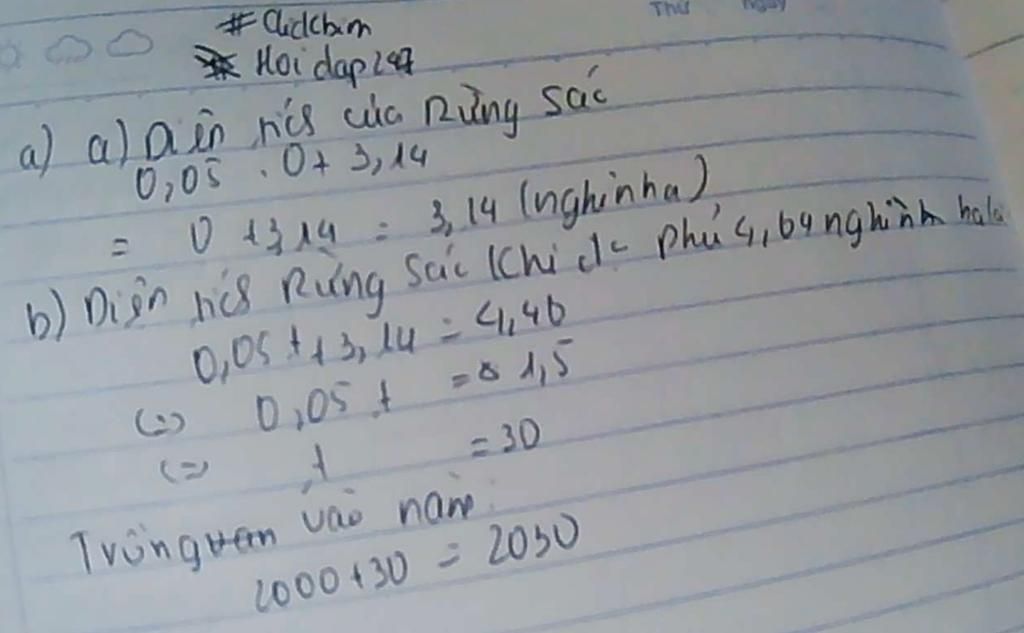 Thứ Ngày
# Clidchim
# Hoidap247
a) a) Diện tích của Rừng Sác
0,05 . 0 + 3,14
= 0 + 3,14 = 3,14 (nghìn ha)
b) Diện tích Rừng Sác khi phủ 4,64 nghìn ha là
0,05t + 3,14 = 4,46
(=) 0,05 t = 1,5
(=) t = 30
Trồng vào năm:
2000 + 30 = 2030